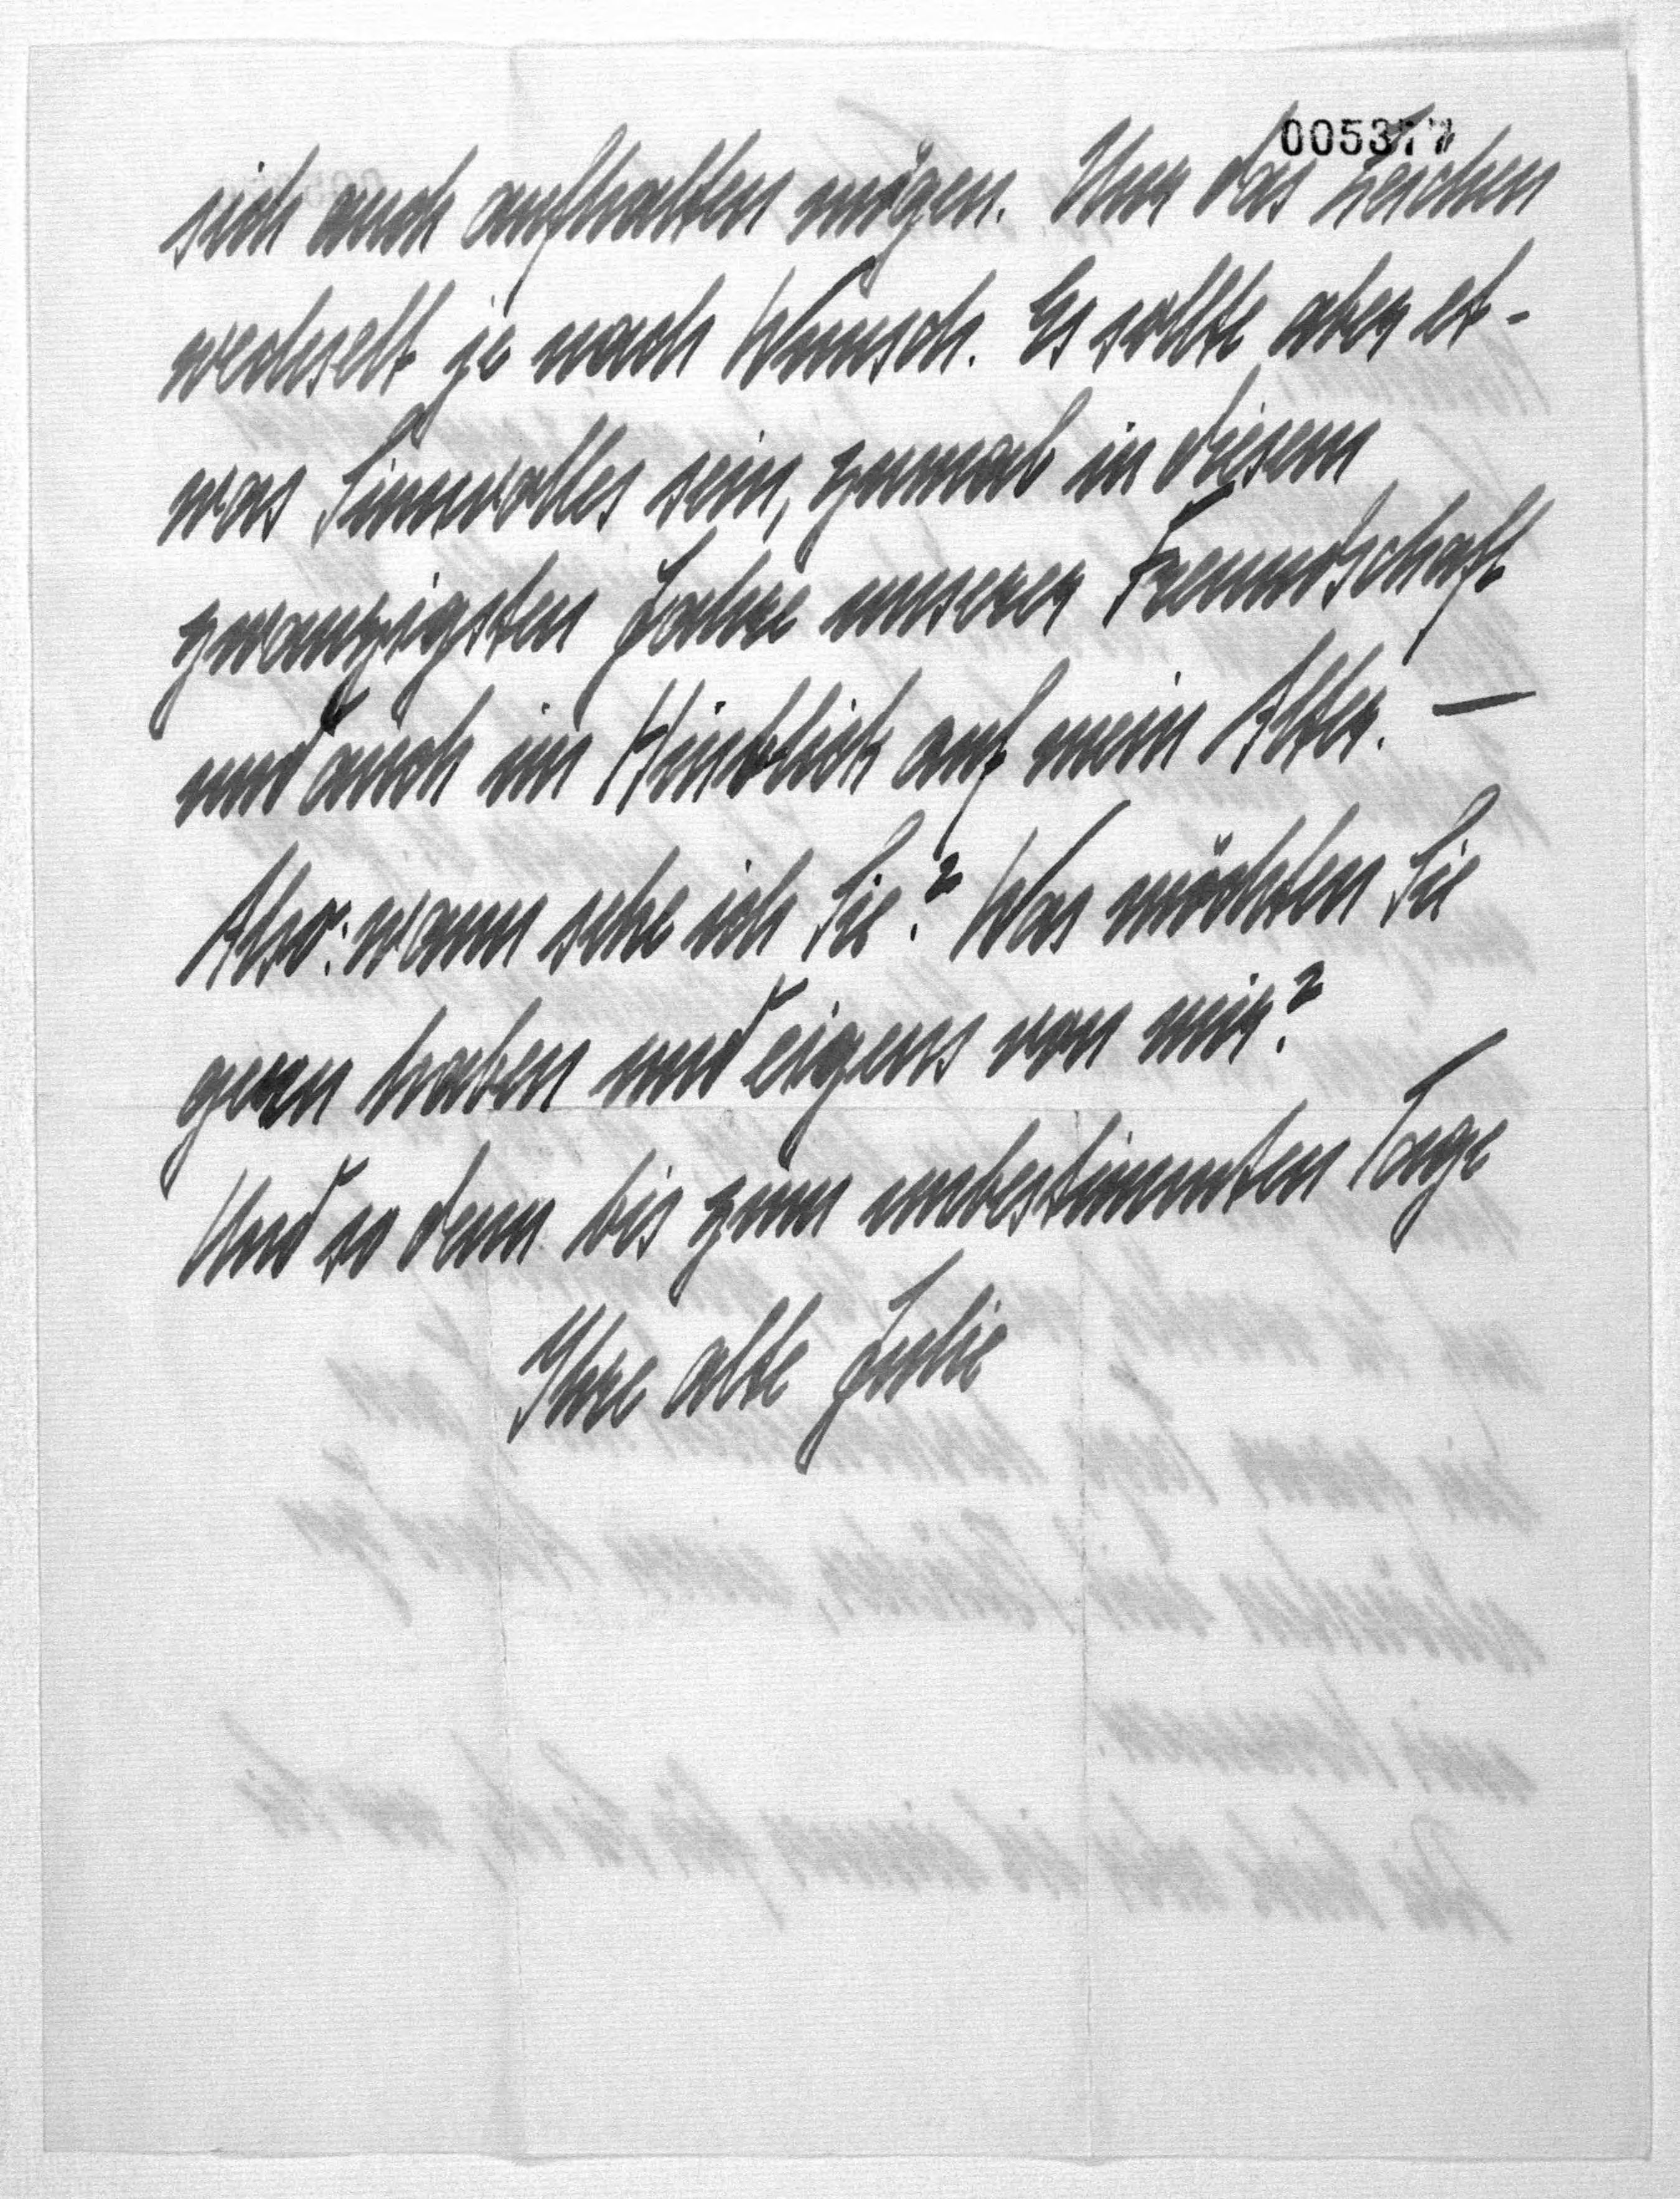 005377
sich auch aufhalten mögen. Nur das Zeichen
wechselt je nach Wunsch. Es sollte aber et-
was Sinnvolles sein, zumal in diesem
zwanzigsten Jahre unserer Freundschaft
und auch im Hinblick auf mein Alter. —
Also: wann sehe ich Sie? Was möchten Sie
gern haben und eigens von mir?
Und so denn bis zum unbestimmten Tage
Ihre alte Julie